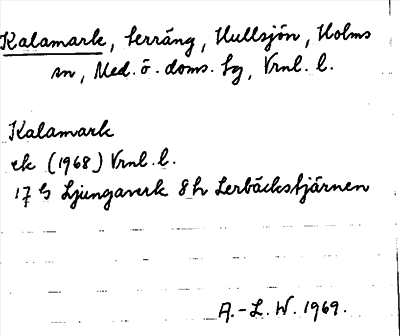 Kalamark, terräng, Hullsjön, Holms
sn, Med. ö. doms. sg, Vrnl. l.
Kalamark
ek (1968) Vrnl. l.
17 G Ljungaverk 8 h Lerbäckstjärnen
A.-L. W. 1969.